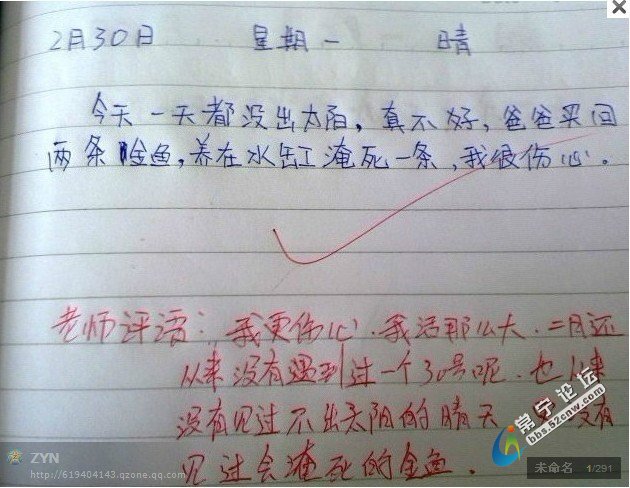 2月30日 星期一 晴
今天一天都没出太阳，真不好，爸爸买回
两条金鱼，养在水缸淹死一条，我很伤心。
老师评语：我更伤心．我活那么大．二月还
从来没有遇到过一个30号呢．也从来
没有见过不出太阳的晴天．更没有
见过会淹死的金鱼．
常宁论坛
bbs.52cnw.com
ZYN
http://619404143.qzone.qq.com
未命名 1/291